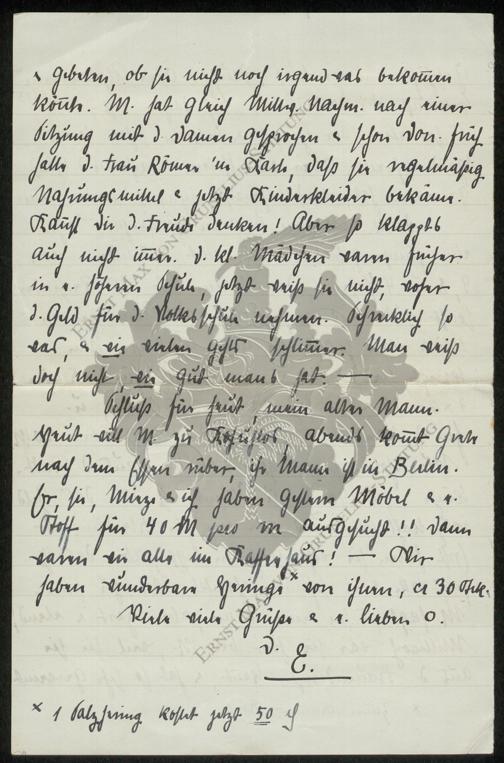 u gebeten, ob sie nicht noch irgend was bekommen
könnte. M. hat gleich Mittw. Nachm. nach einer
Sitzung mit d. Damen gesprochen u schon Don. früh
hatte d. Frau Römer 'ne Karte, daß sie regelmäßig
Nahrungsmittel u jetzt Kinderkleider bekäme.
Kannst Dir d. Freude denken! Aber so klappts
auch nicht immer. D. kl. Mädchen waren früher
in e. höheren Schule, jetzt weiß sie nicht, woher
d. Geld für d. Volksschule nehmen. Schrecklich so
was, u wie vielen gehts schlimmer. Man weiß
doch nicht, wie gut mans hat. —
Schluß für heut, mein alter Mann.
Heut will M. zu, abends kommt Grete
nach dem Essen rüber, ihr Mann ist in Berlin.
Er, sie, Mieze u ich haben gestern Möbel u e.
Stoff für 40 M pro m ausgesucht!! Dann
waren wir alle im Kaffeehaus! — Wir
haben wunderbare Heringe x von ihnen, ca 30 Stck.
Viele viele Grüße u e. lieben O.
D.
E.
x 1 Salzhering kostet jetzt 50 ₰
ERNST MAX VON GRUNELIUS-STIFTUNG
ERNST MAX VON GRUNELIUS-STIFTUNG